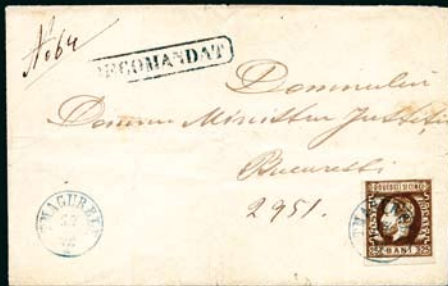 No 64
RECOMANDAT
Domnului
Domnu Ministru Justiţi
Bucuresti
2951.
T.MAGURELE
BANI